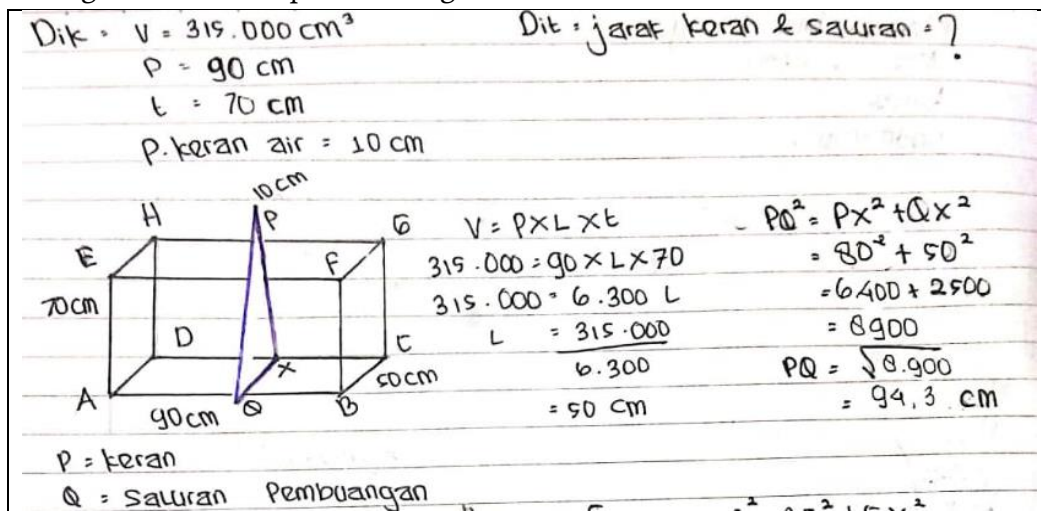 Dik : V = 315.000 cm³
P = 90 cm
t = 70 cm
P. keran air = 10 cm
Dit : jarak keran & saluran = ?
10 cm
H
P
G
E
F
70 cm
D
C
X
50 cm
A
90 cm
Q
B
V = P X L X t
315.000 = 90 X L X 70
315.000 = 6.300 L
L = 315.000
6.300
= 50 cm
PQ² = PX² + QX²
= 80² + 50²
= 6.400 + 2500
= 8900
PQ = √8.900
= 94,3 cm
P = keran
Q = Saluran Pembuangan